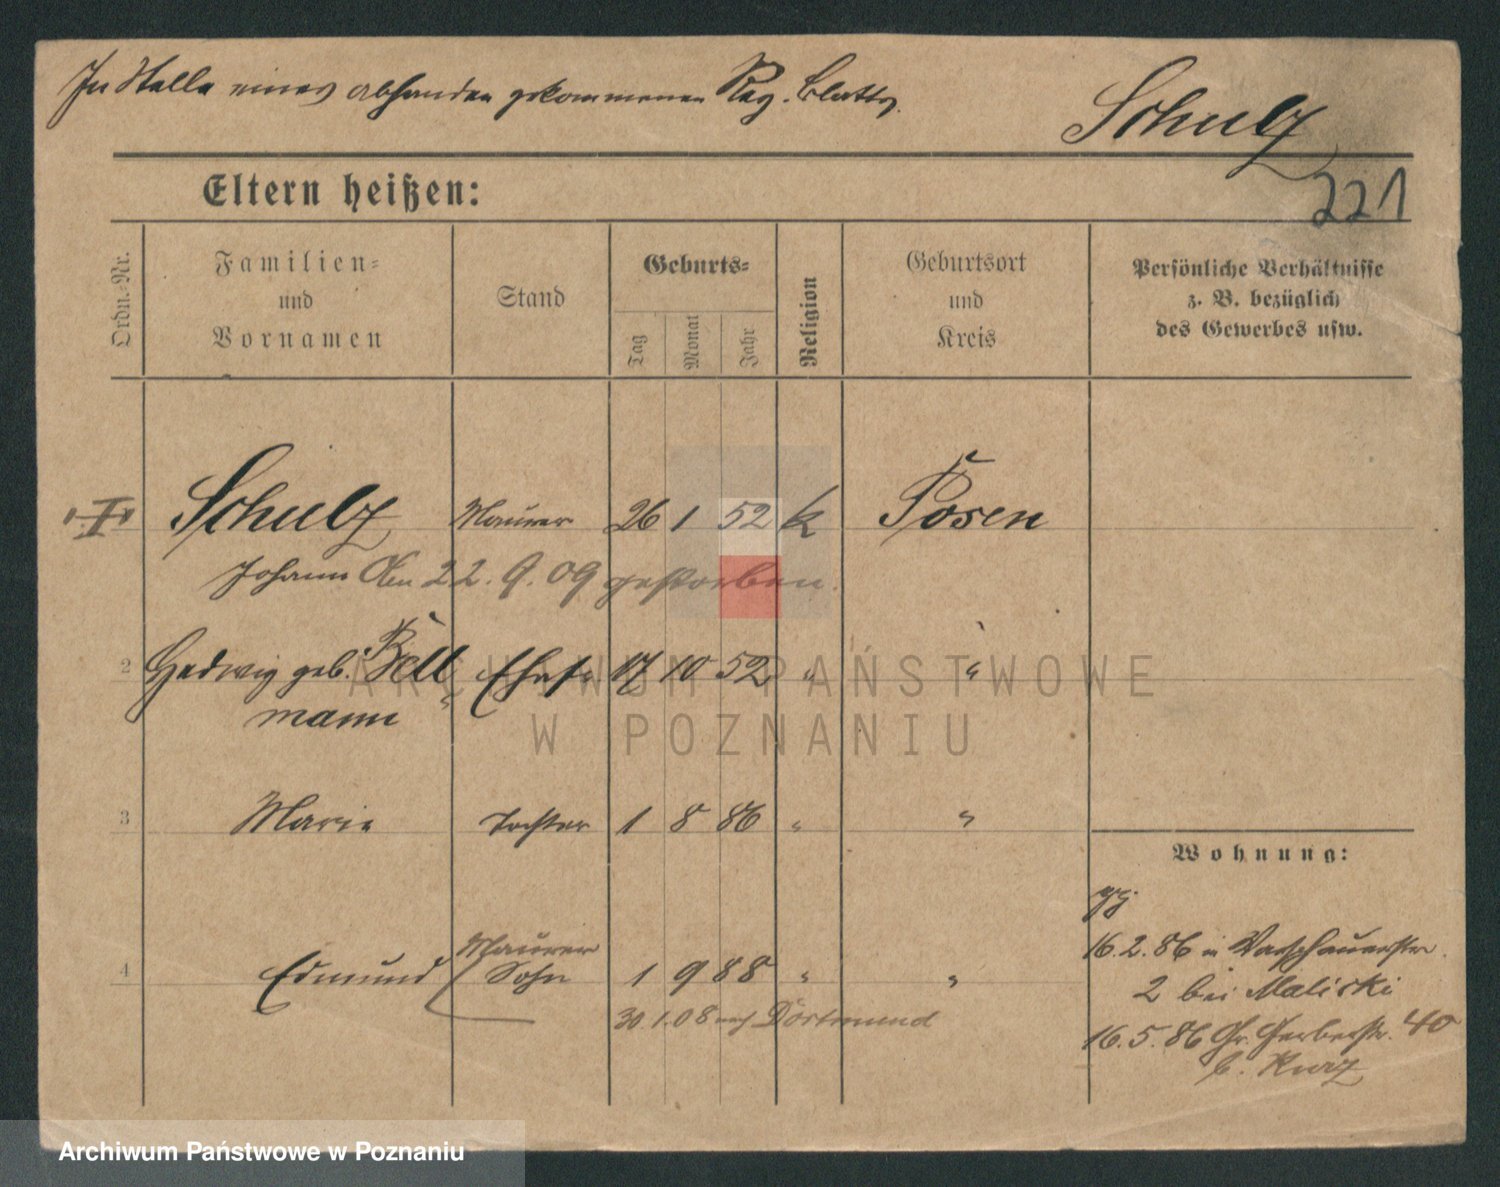 In Stelle eines abhanden gekommenen Reg. Blatts.
Schulz
221
Eltern heißen:
Ordn.-Nr.
Familien-
und
Vornamen
Stand
Geburts-
Tag
Monat
Jahr
Religion
Geburtsort
und
Kreis
Persönliche Verhältnisse
z. B. bezüglich
des Gewerbes usw.
Schulz Maurer 26 1 52 k Posen
Johann Am 22.9.09 gestorben.
2 Hedwig geb. Bell Ehefr 17 10 52 " "
mann
3 Marie Tochter 1 8 86 " "
Wohnung:
Maurer
4 Edmund Sohn 1 9 88 " "
30 1.08 nach Dortmund
16.2.86 Warschauerstr.
2 bei Maliski
16.5.86 Gr. Gerberstr. 40
b. Kurz
ARCHIWUM PAŃSTWOWE
W POZNANIU
Archiwum Państwowe w Poznaniu